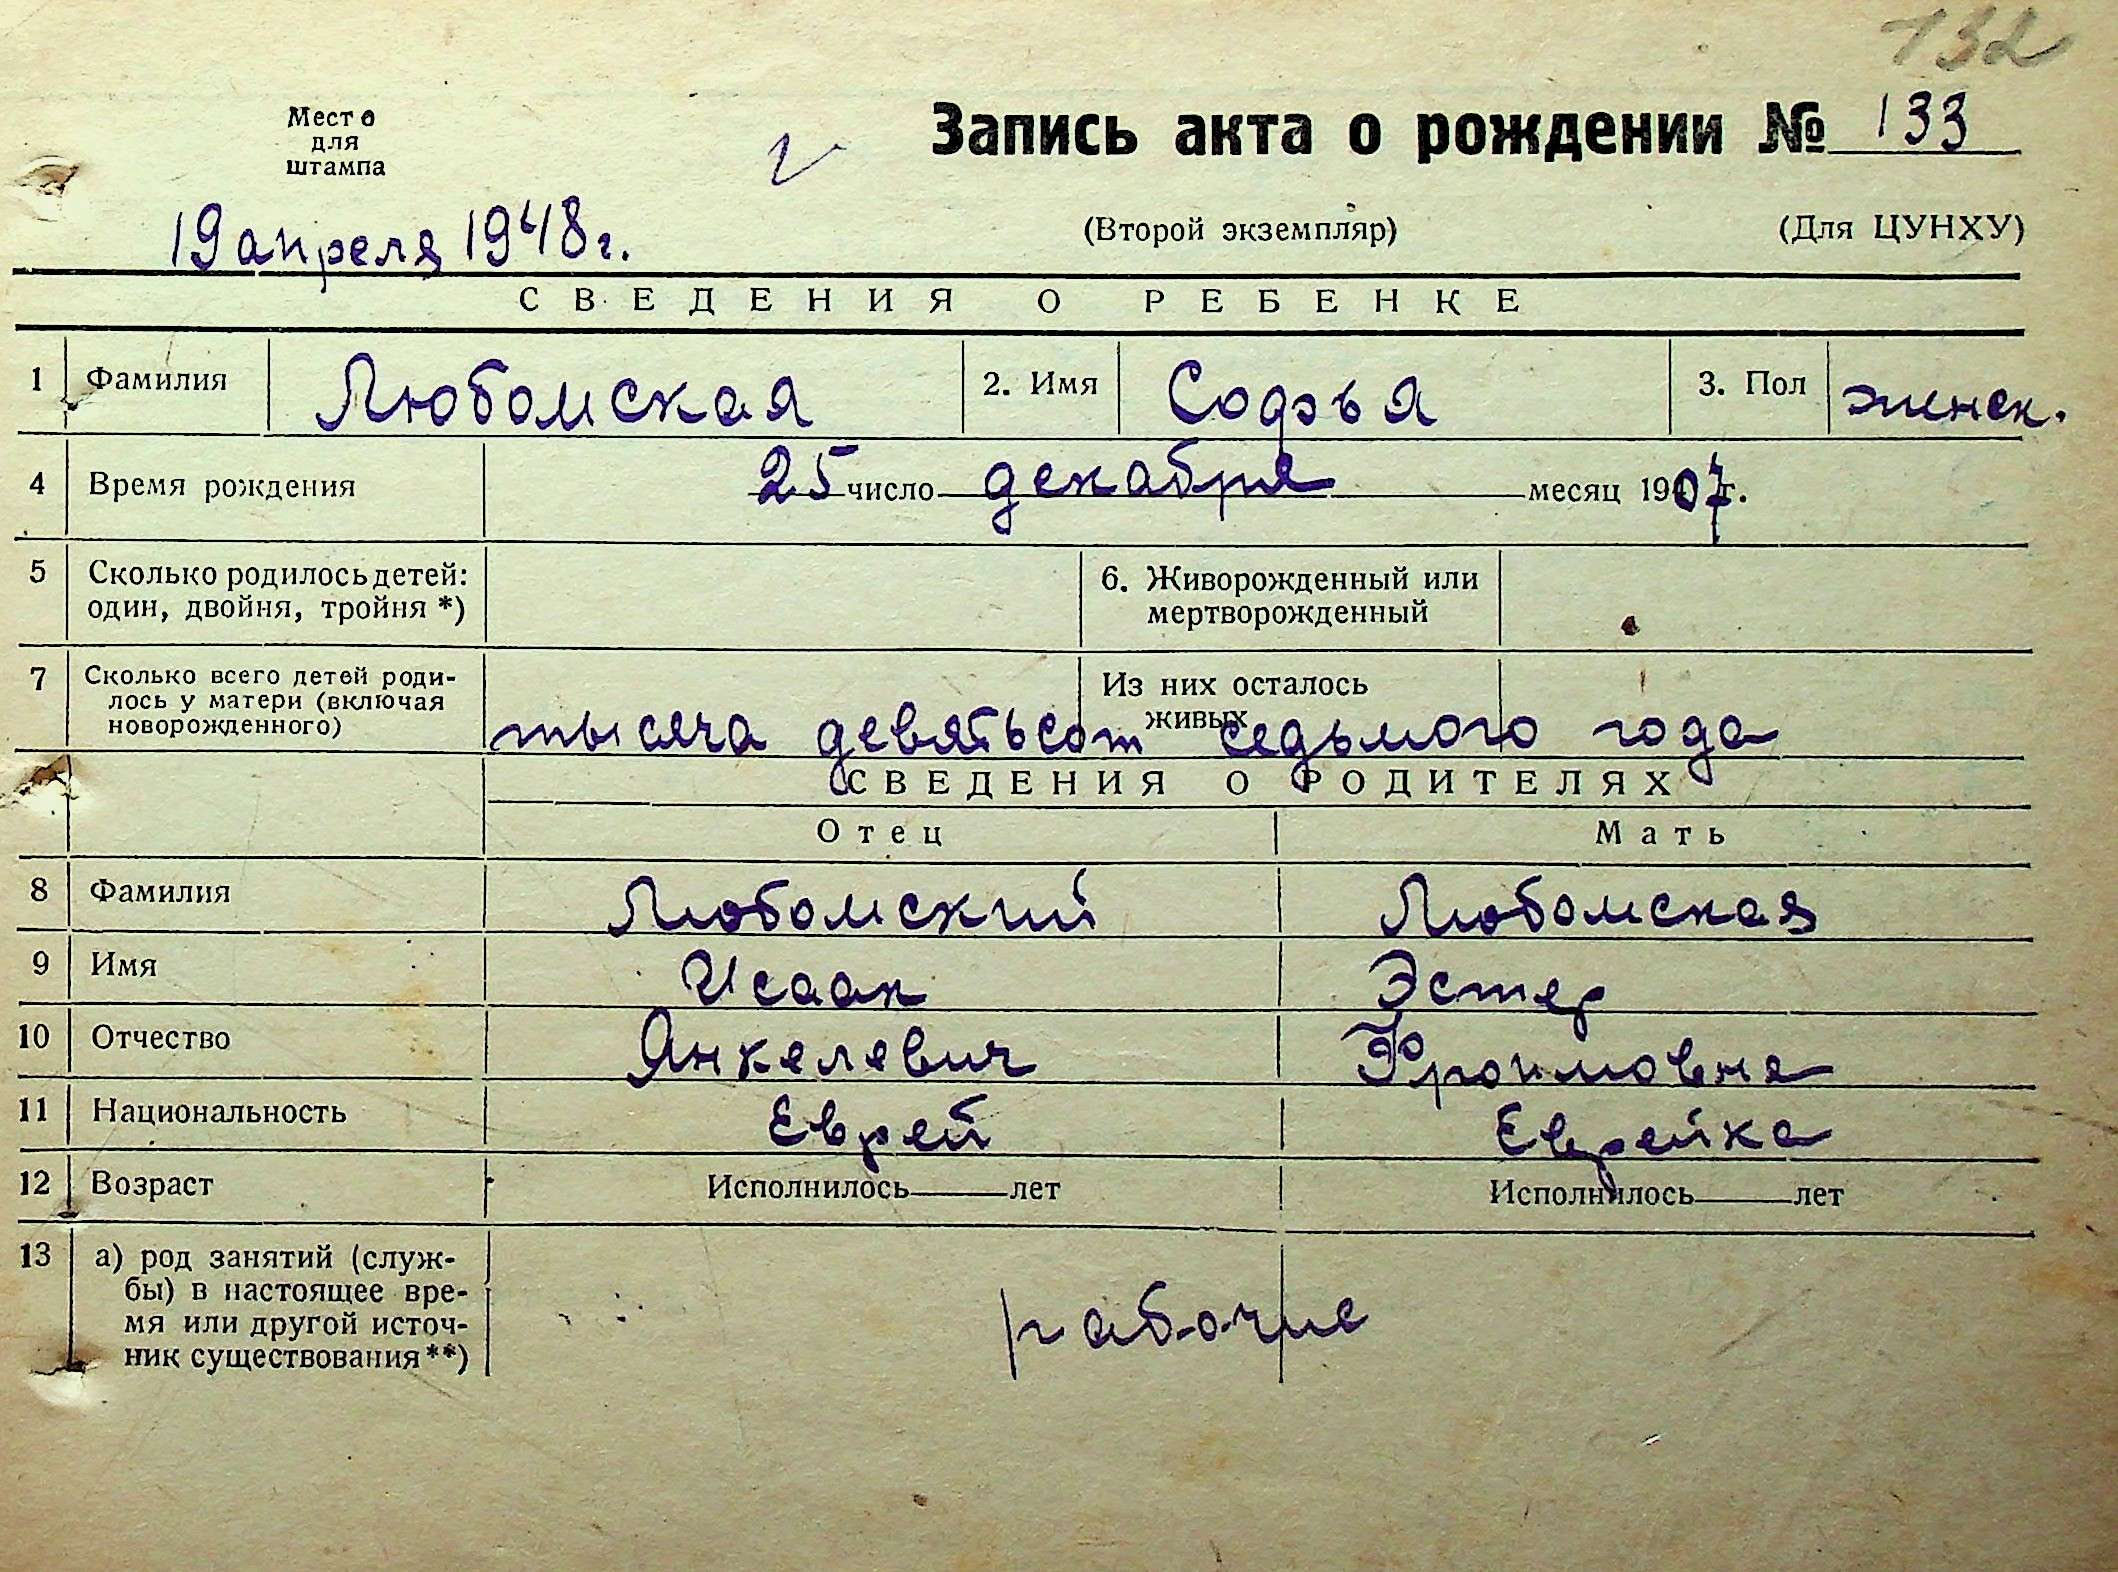 132
Место
для
штампа
Запись акта о рождении № 133
19 апреля 1948 г.
(Второй экземпляр) (Для ЦУНХУ)
СВЕДЕНИЯ О РЕБЕНКЕ
1 Фамилия Любомская 2. Имя Софья 3. Пол женск.
4 Время рождения 25 число декабря месяц 1907 г.
5 Сколько родилось детей: один, двойня, тройня *) 6. Живорожденный или мертворожденный
7 Сколько всего детей роди-
лось у матери (включая
новорожденного) Из них осталось
живых
тысяча девятьсот седьмого года
СВЕДЕНИЯ О РОДИТЕЛЯХ
Отец Мать
8 Фамилия Любомский Любомская
9 Имя Исаак Эстер
10 Отчество Янкелевич Фроимовна
11 Национальность Еврей Еврейка
12 Возраст Исполнилось лет Исполнилось лет
13 а) род занятий (служ-
бы) в настоящее вре-
мя или другой источ-
ник существования**)
рабочие